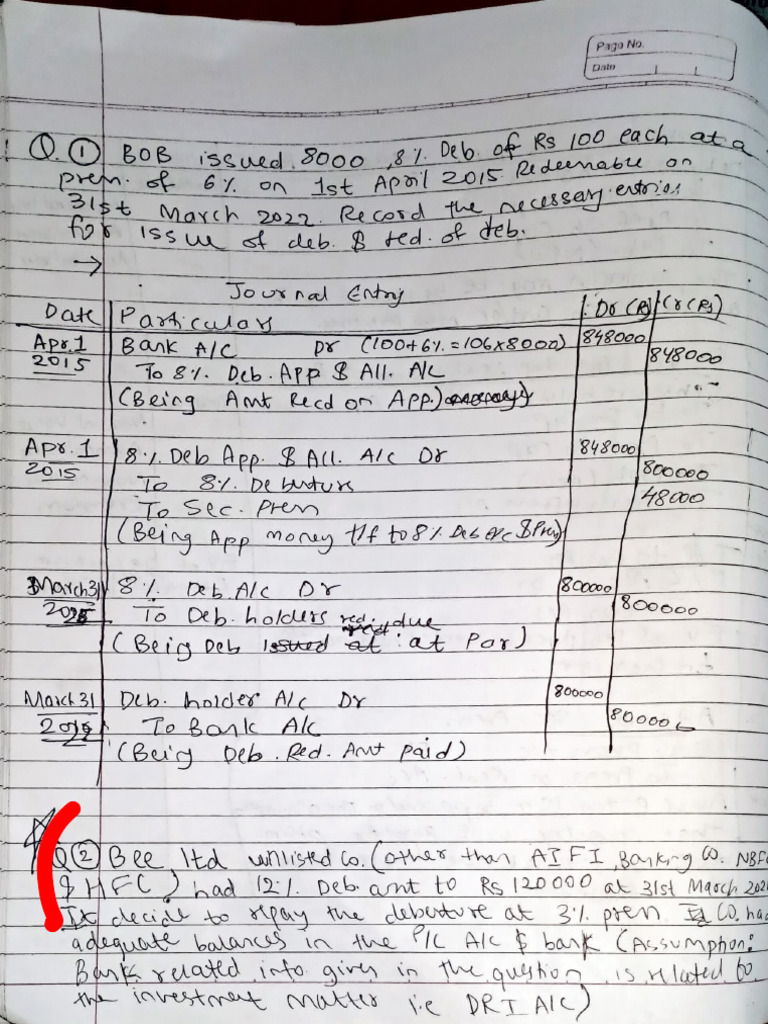 Page No.
Date
Q. ① BOB issued 8000, 8% Deb. of Rs 100 each at a
prem. of 6% on 1st April 2015 Redeemable on
31st March 2022. Record the necessary entries
for issue of deb. & red. of deb.
→
Journal Entry
Date Particulars Dr (Rs) Cr (Rs)
Apr. 1 Bank A/C Dr (100+6%=106x8000) 848000
2015 To 8% Deb. App & All. A/C 848000
(Being Amt Recd on App.)
Apr. 1 8% Deb App. & All. A/C Dr 848000
2015 To 8% Debuturs 800000
To Sec. Prem 48000
(Being App money t/f to 8% Deb A/C & Prem)
March 31 8% Deb. A/C Dr 800000
To Deb. holders 800000
red. due
(Beig Deb at Par)
March 31 Deb. holder A/C Dr 800000
To Bank A/C 800000
(Beig Deb. Red. Amt paid)
Q ② Bee ltd unlisted Co. (other than AIFI, Banking Co. NBF
& HFC) had 12% Deb amt to Rs 120000 at 31st March
It decide to repay the debuture at 3% prem Co. had
adequate balances in the P/L A/C & bank (Assumption:
Bank related info given in the question is related to
the investment matter i.e DRI A/C)